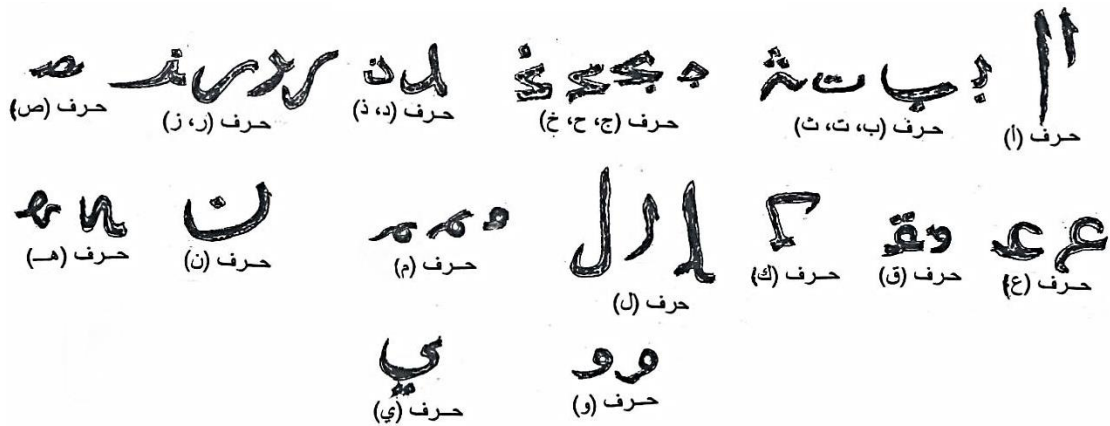 حرف (ا) حرف (ب، ت، ث) حرف (ج، ح، خ) حرف (د، ذ) حرف (ر، ز) حرف (ص)
حرف (ع) حرف (ق) حرف (ك) حرف (ل) حرف (م) حرف (ن) حرف (هـ)
حرف (و) حرف (ي)